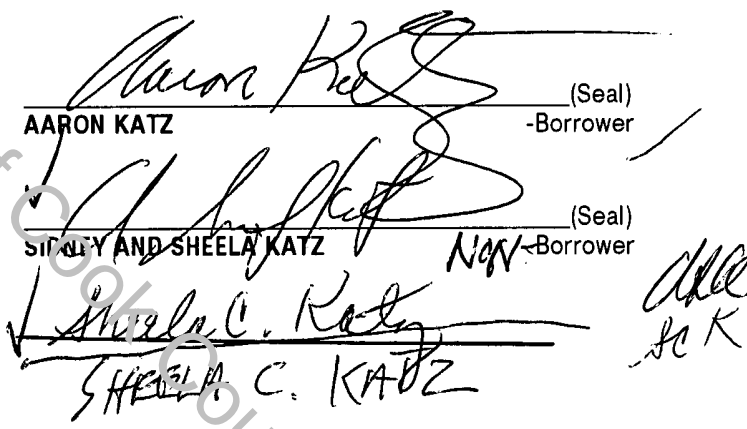 Aaron Katz (Seal)
AARON KATZ -Borrower
Katz (Seal)
SIDNEY AND SHEELA KATZ Non-Borrower
Sheela C. Katz
SCK
SHEELA C. KATZ
of Cook Cou